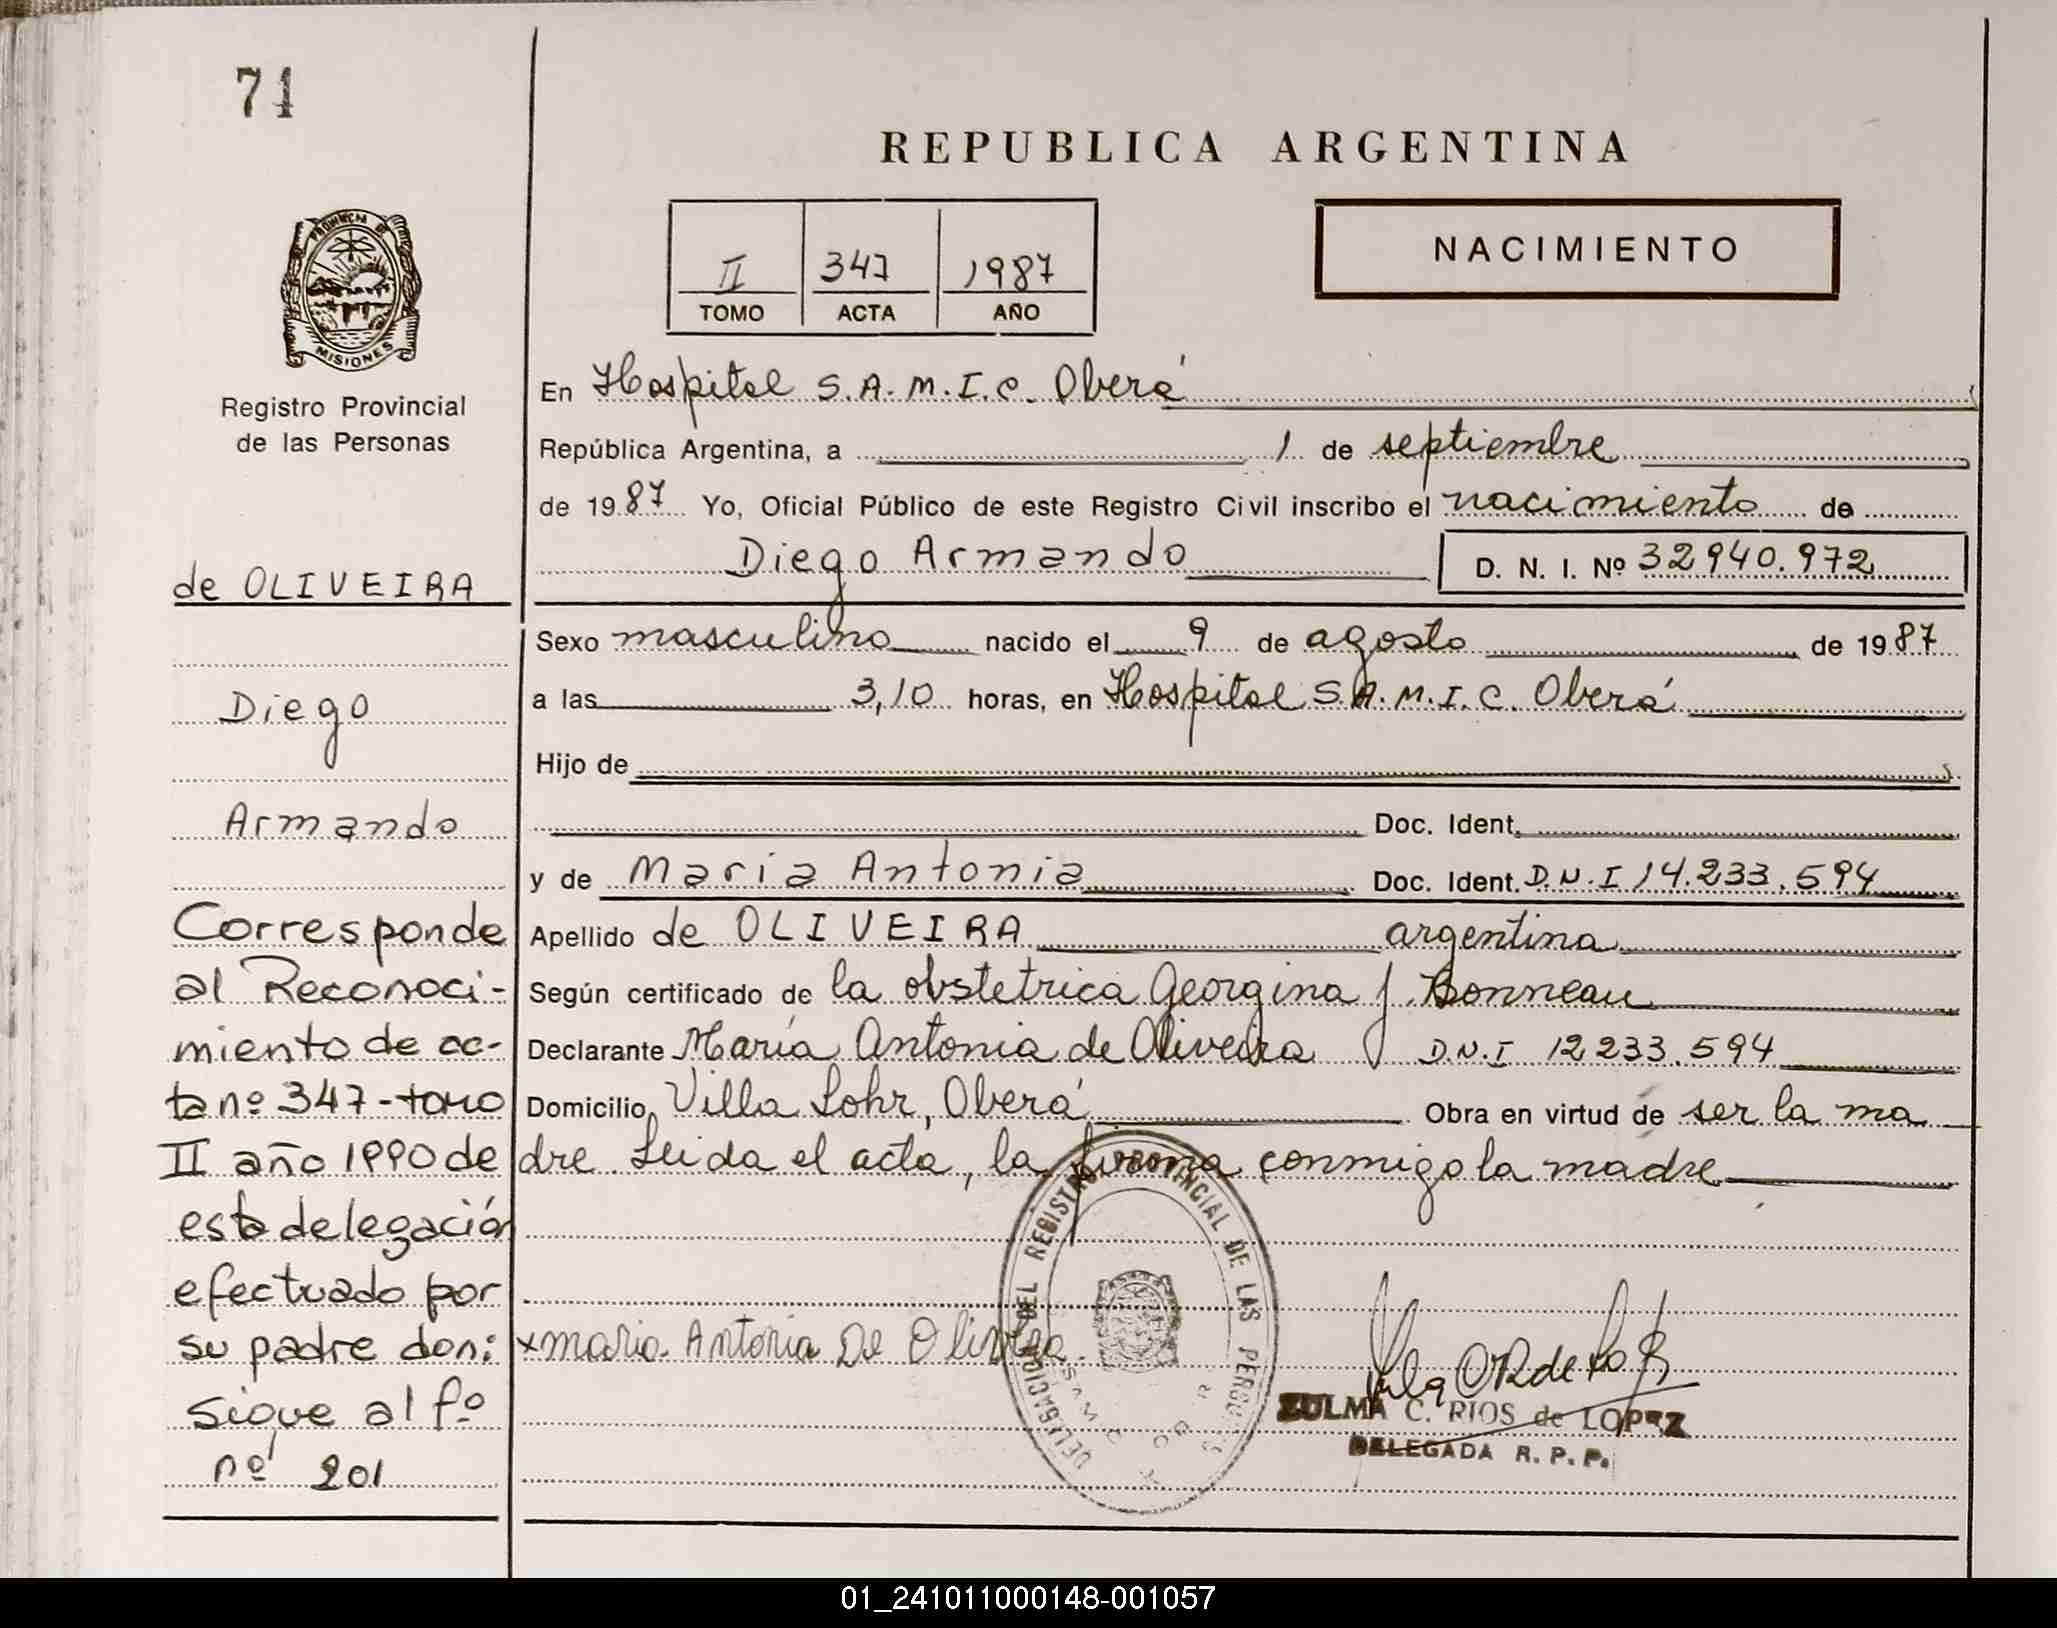 71
REPUBLICA ARGENTINA
II 347 1987
TOMO ACTA AÑO
NACIMIENTO
PROVINCIA DE
MISIONES
Registro Provincial
de las Personas
de OLIVEIRA
Diego
Armando
Corresponde
al Reconoci-
miento de ac-
ta nº 347-tomo
II año 1990 de
esta delegación
efectuado por
su padre don:
sigue al fº
nº 201
En Hospital S.A.M.I.C. Oberá
República Argentina, a 1 de septiembre
de 1987 Yo, Oficial Público de este Registro Civil inscribo el nacimiento de
Diego Armando D. N. I. Nº 32940.972
Sexo masculino nacido el 9 de agosto de 1987
a las 3,10 horas, en Hospital S.A.M.I.C. Oberá
Hijo de
Doc. Ident.
y de María Antonia Doc. Ident. D.N.I 14.233.594
Apellido de OLIVEIRA argentina
Según certificado de la obstetrica Georgina J. Bonneau
Declarante María Antonia de Oliveira D.N.I 12233.594
Domicilio Villa Lohr, Oberá Obra en virtud de ser la ma
dre Leida el acta, la firma conmigo la madre
x maria Antonia De Oliveira
DELEGACION DEL REGISTRO PROVINCIAL DE LAS PERSONAS
ZULMA C. RIOS de LOPEZ
DELEGADA R. P. P.
01_241011000148-001057